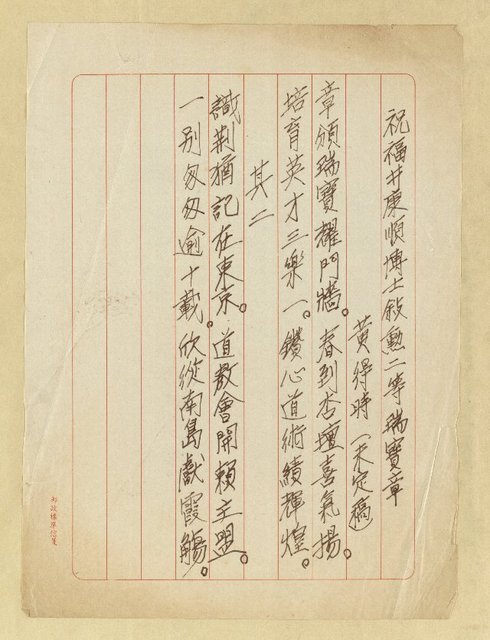 祝福井康順博士敍勲二等瑞寶章
黃得時（未定稿）
章頒瑞寶耀門牆。春到杏壇喜氣揚。
培育英才三樂一。鑽心道術績輝煌。
其二
識荊猶記在東京。道教會開賴主盟。
一別匆匆逾十載。欣從南島獻霞觴。
郵政標準信箋